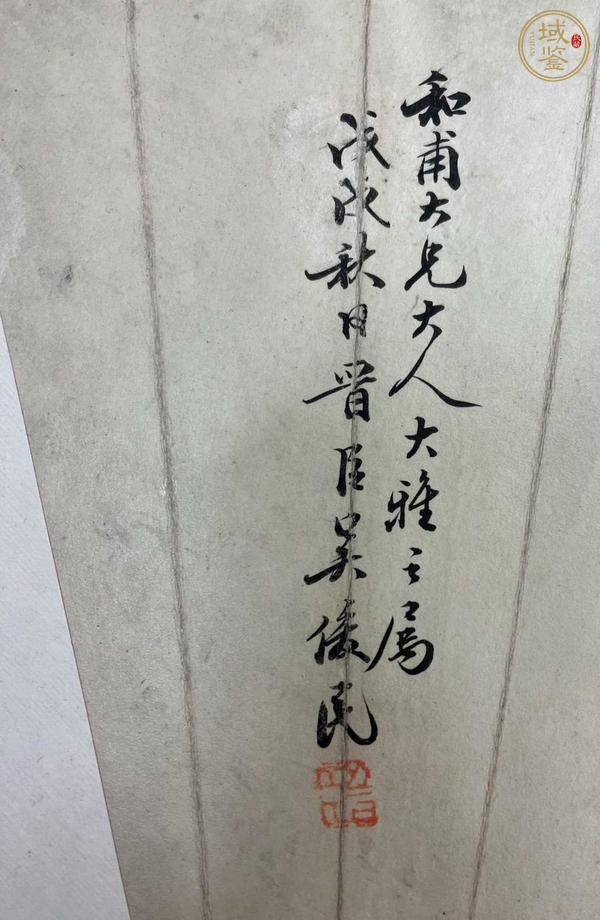 和甫大兄大人大雅之属
戊戌秋日晋臣吴儀民
域鉴
YUJIAN